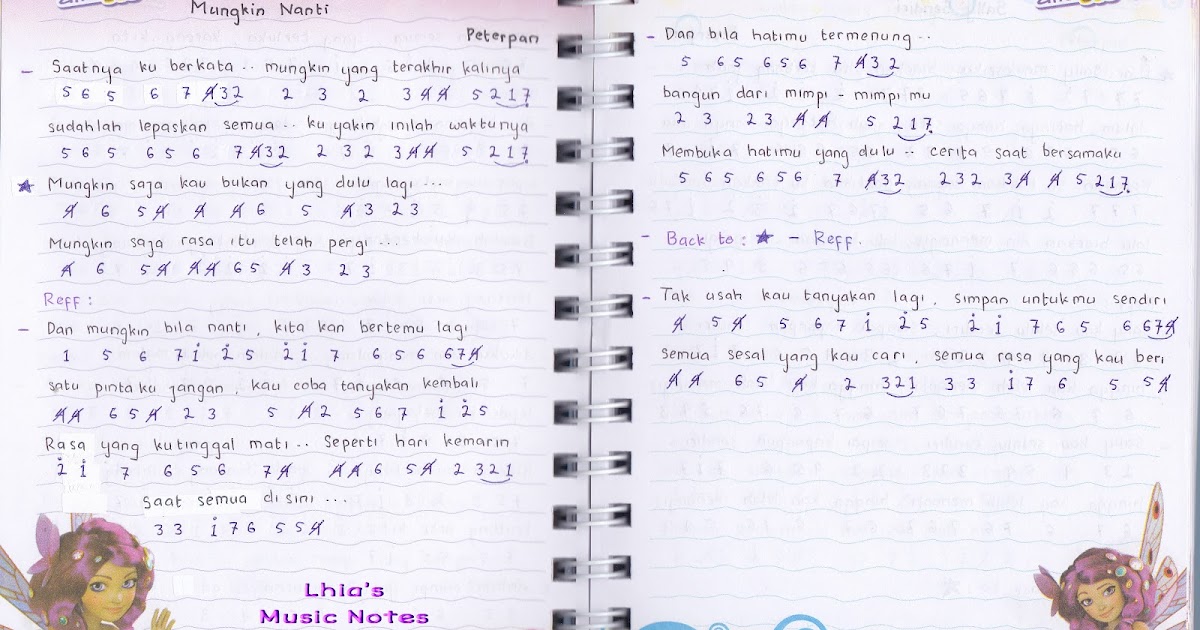 Mungkin Nanti
Peterpan
- Saatnya ku berkata .. mungkin yang terakhir kalinya
5 6 5 6 7 4̸32 2 3 2 3 4̸ 4̸ 5 217̣
sudahlah lepaskan semua .. ku yakin inilah waktunya
5 6 5 6 5 6 7 4̸32 2 3 2 3 4̸ 4̸ 5 217̣
★ Mungkin saja kau bukan yang dulu lagi ...
4̸ 6 5 4̸ 4̸ 4̸ 6 5 4̸ 3 2 3
Mungkin saja rasa itu telah pergi ...
4̸ 6 5 4̸ 4̸ 4̸ 6 5 4̸ 3 2 3
Reff :
- Dan mungkin bila nanti , kita kan bertemu lagi
1 5 6 7 1̇ 2̇ 5 2̇ 1̇ 7 6 5 6 6 7 4̸
satu pinta ku jangan , kau coba tanyakan kembali
4̸ 4̸ 6 5 4̸ 2 3 5 4̸ 2 5 6 7 1̇ 2̇ 5
Rasa yang kutinggal mati .. Seperti hari kemarin
2̇ 1̇ 7 6 5 6 7 4̸ 4̸ 4̸ 6 5 4̸ 2 321
Saat semua disini ...
3 3 1̇ 7 6 5 5 4̸
Lhia's
Music Notes
- Dan bila hatimu termenung ..
5 6 5 6 5 6 7 4̸32
bangun dari mimpi - mimpi mu
2 3 2 3 4̸ 4̸ 5 217̣
Membuka hatimu yang dulu .. cerita saat bersamaku
5 6 5 6 5 6 7 4̸32 2 3 2 3 4̸ 4̸ 5 217̣
- Back to : ★ - Reff.
- Tak usah kau tanyakan lagi , simpan untukmu sendiri
4̸ 5 4̸ 5 6 7 1̇ 2̇ 5 2̇ 1̇ 7 6 5 6 6 7 4̸
semua sesal yang kau cari , semua rasa yang kau beri
4̸ 4̸ 6 5 4̸ 2 321 3 3 1̇ 7 6 5 5 4̸